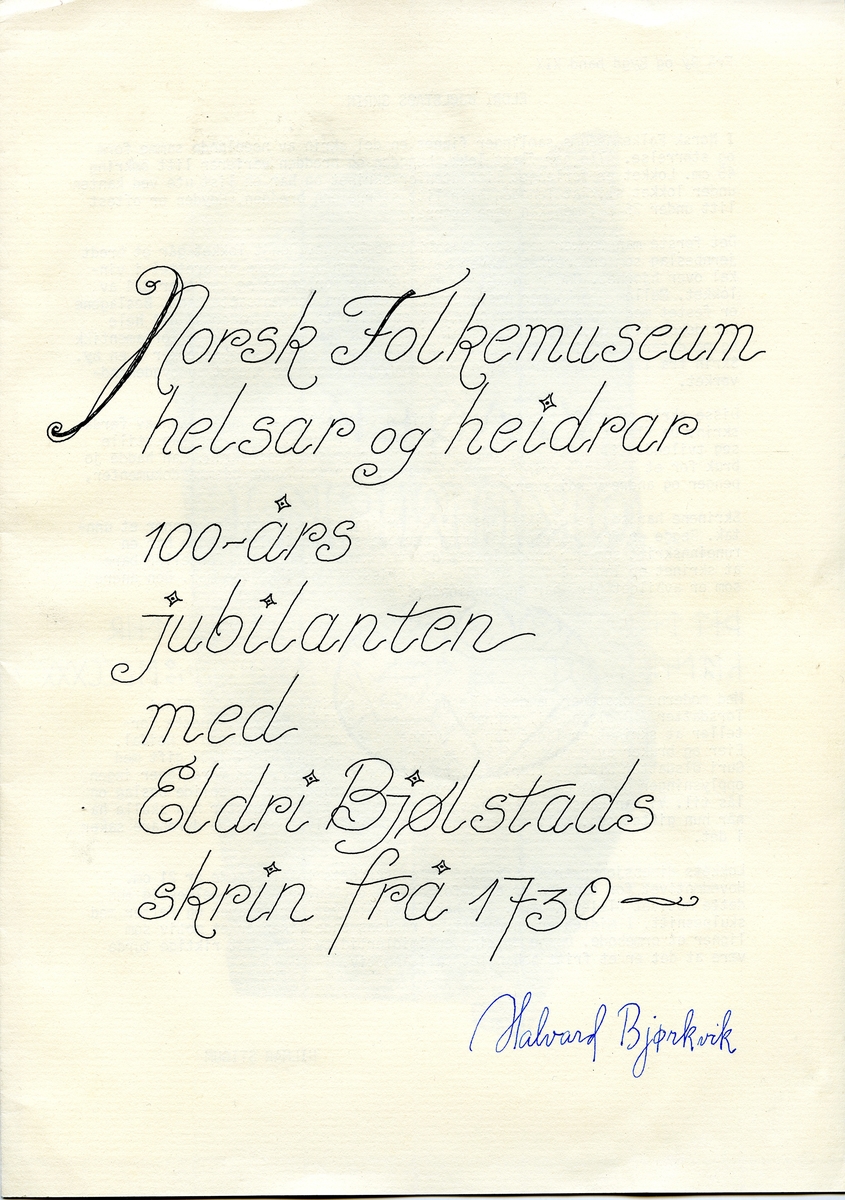 Norsk Folkemuseum
helsar og heidrar
100-års
jubilanten
med
Eldri Bjølstads
skrin frå 1730
Halvard Bjørkvik